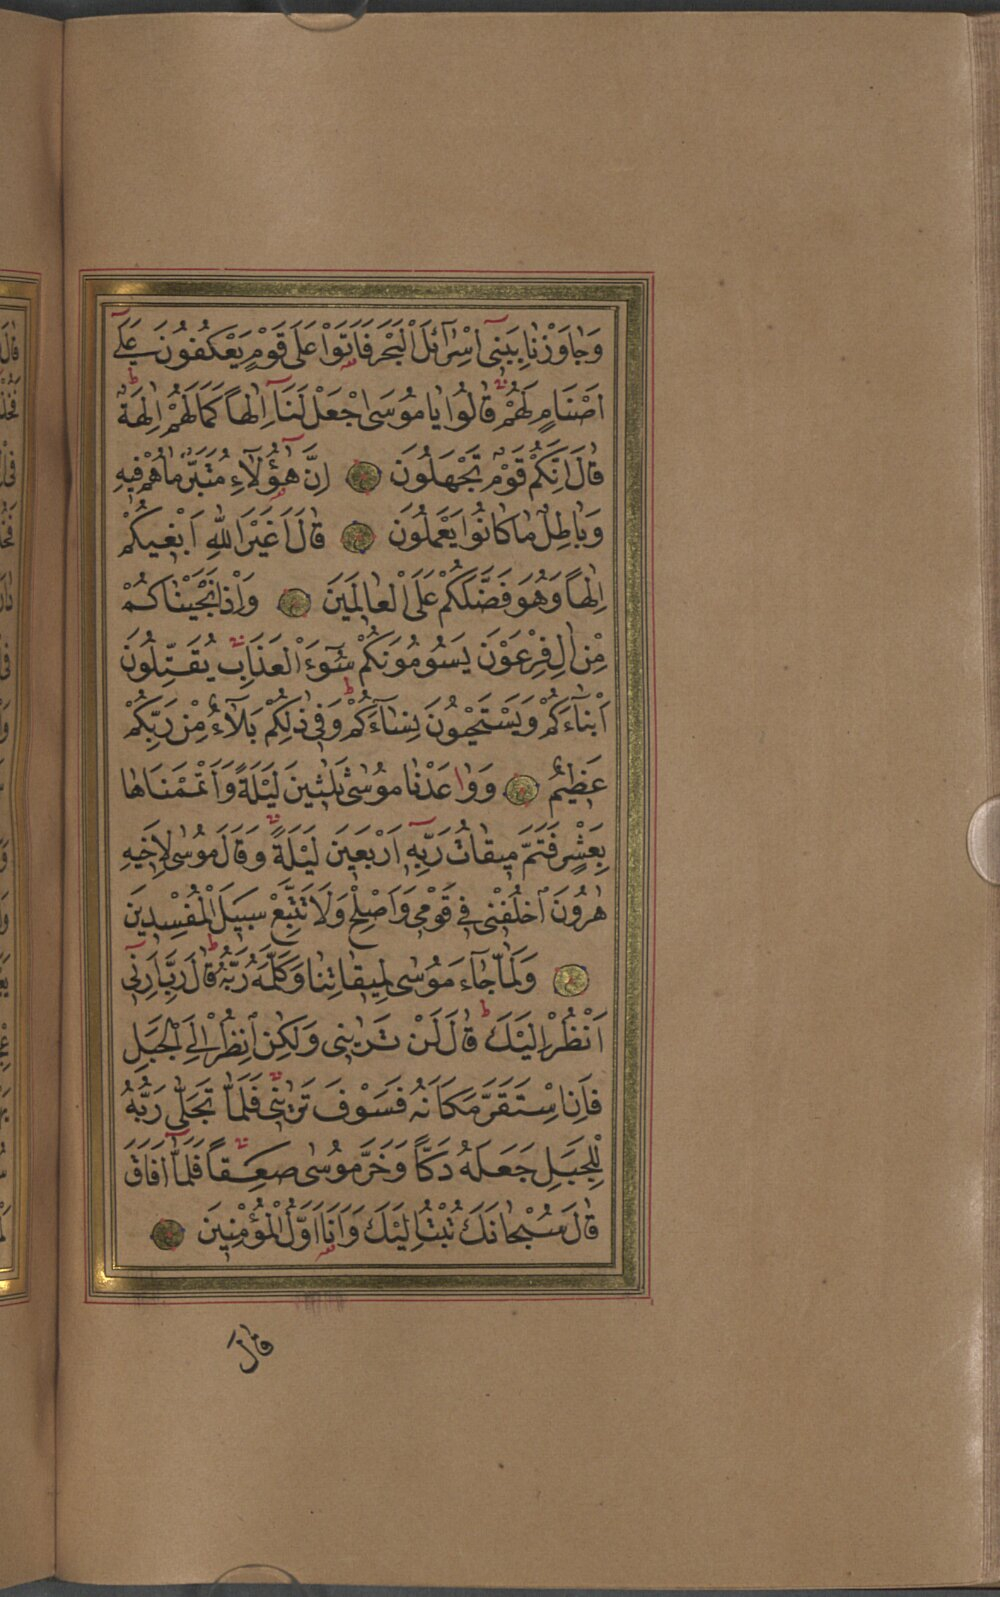 وَجَاوَزْنَا بِبَنِى اِسْرَآئِلَ الْبَحْرَ فَاَتَوْا عَلٰى قَوْمٍ يَعْكُفُونَ عَلٰٓى
اَصْنَامٍ لَهُمْ قَالُوا يَا مُوسَى اجْعَلْ لَنَٓا اِلٰهًا كَمَا لَهُمْ اٰلِهَةٌ
قَالَ اِنَّكُمْ قَوْمٌ تَجْهَلُونَ اِنَّ هٰٓؤُلَٓاءِ مُتَبَّرٌ مَا هُمْ فِيهِ
وَبَاطِلٌ مَا كَانُوا يَعْمَلُونَ قَالَ اَغَيْرَ اللّٰهِ اَبْغِيكُمْ
اِلٰهًا وَهُوَ فَضَّلَكُمْ عَلَى الْعَالَمِينَ وَاِذْ اَنْجَيْنَاكُمْ
مِنْ اٰلِ فِرْعَوْنَ يَسُومُونَكُمْ سُٓوءَ الْعَذَابِ يُقَتِّلُونَ
اَبْنَٓاءَكُمْ وَيَسْتَحْيُونَ نِسَٓاءَكُمْ وَفِى ذٰلِكُمْ بَلَٓاءٌ مِنْ رَبِّكُمْ
عَظِيمٌ وَوَاعَدْنَا مُوسٰى ثَلٰثِينَ لَيْلَةً وَاَتْمَمْنَاهَا
بِعَشْرٍ فَتَمَّ مِيقَاتُ رَبِّهٖٓ اَرْبَعِينَ لَيْلَةً وَقَالَ مُوسٰى لِاَخِيهِ
هٰرُونَ اخْلُفْنِى فِى قَوْمِى وَاَصْلِحْ وَلَا تَتَّبِعْ سَبِيلَ الْمُفْسِدِينَ
وَلَمَّا جَٓاءَ مُوسٰى لِمِيقَاتِنَا وَكَلَّمَهُ رَبُّهُ قَالَ رَبِّ اَرِنِٓى
اَنْظُرْ اِلَيْكَ قَالَ لَنْ تَرٰينِى وَلٰكِنِ انْظُرْ اِلَى الْجَبَلِ
فَاِنِ اسْتَقَرَّ مَكَانَهُ فَسَوْفَ تَرٰينِى فَلَمَّا تَجَلّٰى رَبُّهُ
لِلْجَبَلِ جَعَلَهُ دَكًّا وَخَرَّ مُوسٰى صَعِقًا فَلَمَّٓا اَفَاقَ
قَالَ سُبْحَانَكَ تُبْتُ اِلَيْكَ وَاَنَا اَوَّلُ الْمُؤْمِنِينَ
قَالَ